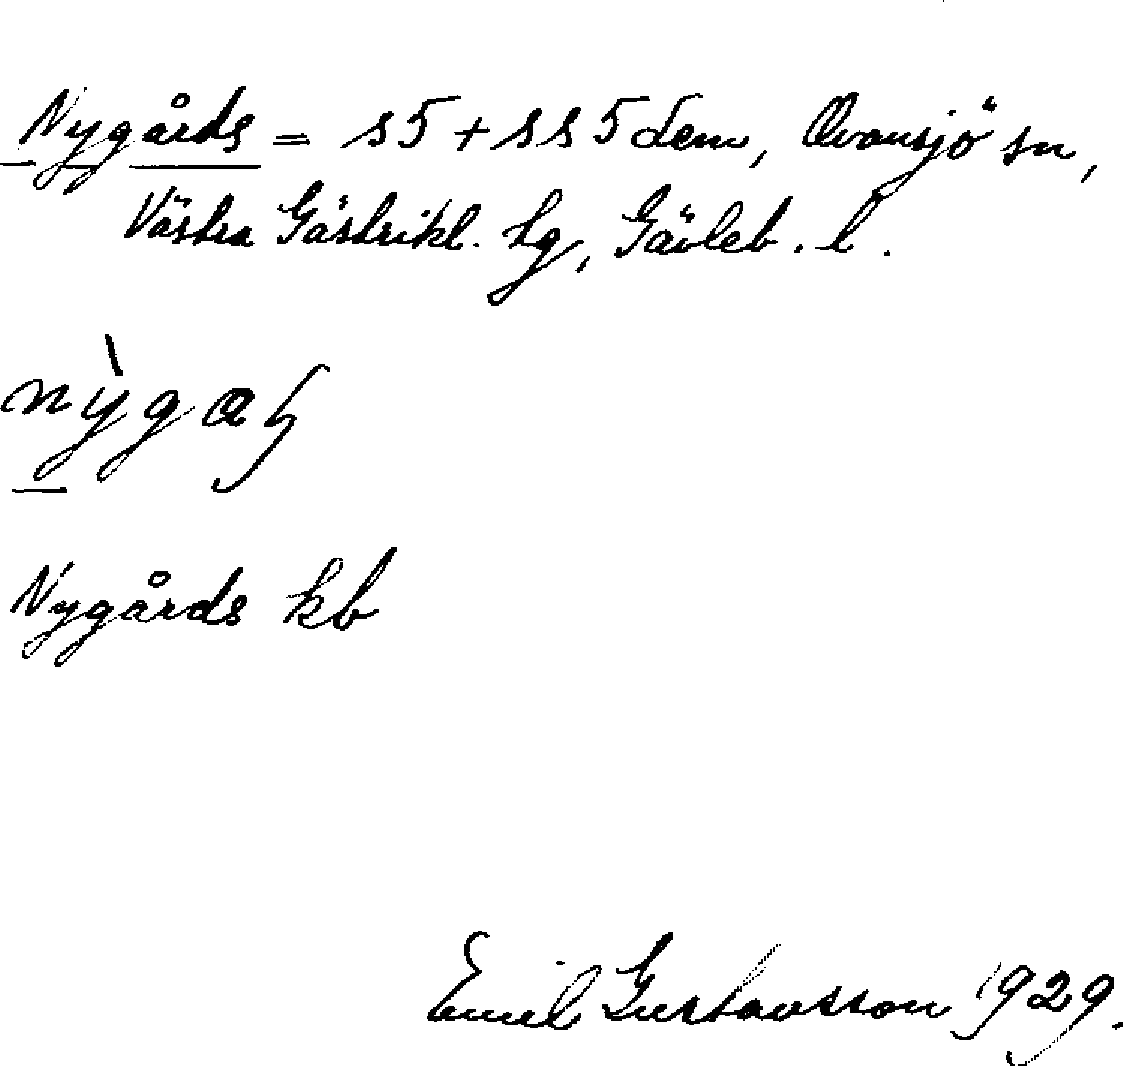 Nygårds = s5+ss5 dem, Ovansjö sn,
Västra Gästrikl. tg, Gävleb. l.
Nygårds kb
Emil Gustavsson 1929.